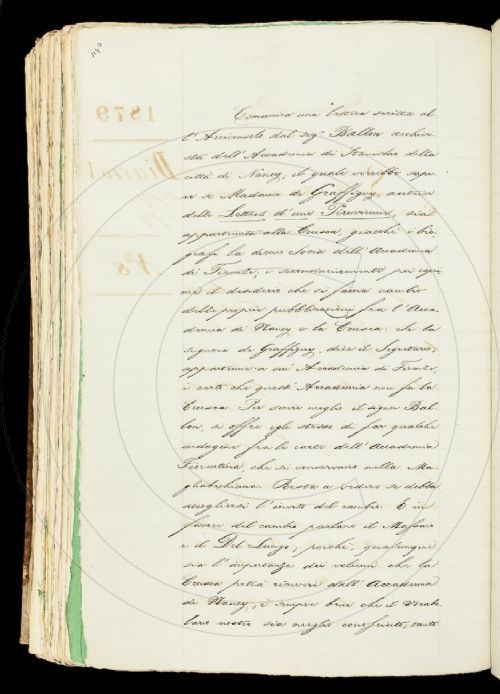 Comunica una lettera scritta al
l'Arciconsolo dal sig.r Ballon archivi-
sta dell'Accademia di Stanislao della
città di Nancy, il quale vorrebbe sape
re se Madama de Graffigny, autrice
delle Lettres d'une Péruvienne, sia
appartenuta alla Crusca, giacchè i bio-
grafi la dicono Socia dell'Accademia
di Firenze, e secondariamente poi espri
me il desiderio che si faccia cambio
delle proprie pubblicazioni fra l'Acca-
demia di Nancy e la Crusca. Che la
signora de Graffigny, dice il Segretario,
appartenne a un'Accademia di Firenze,
è certo che quest'Accademia non fu la
Crusca. Per servir meglio il signor Bal-
lon, si offre egli stesso di far qualche
indagine fra le carte dell'Accademia
Fiorentina, che si conservano nella Ma-
gliabechiana. Resta a vedere se debba
accogliersi l'invito del cambio. E in
favore del cambio parlano il Massaio
e il Del Lungo, poichè, qualunque
sia l'importanza dei volumi che la
Crusca potrà ricevere dall'Accademia
di Nancy, è sempre bene che il Vocabo-
lario nostro sia meglio conosciuto, tanto
1879